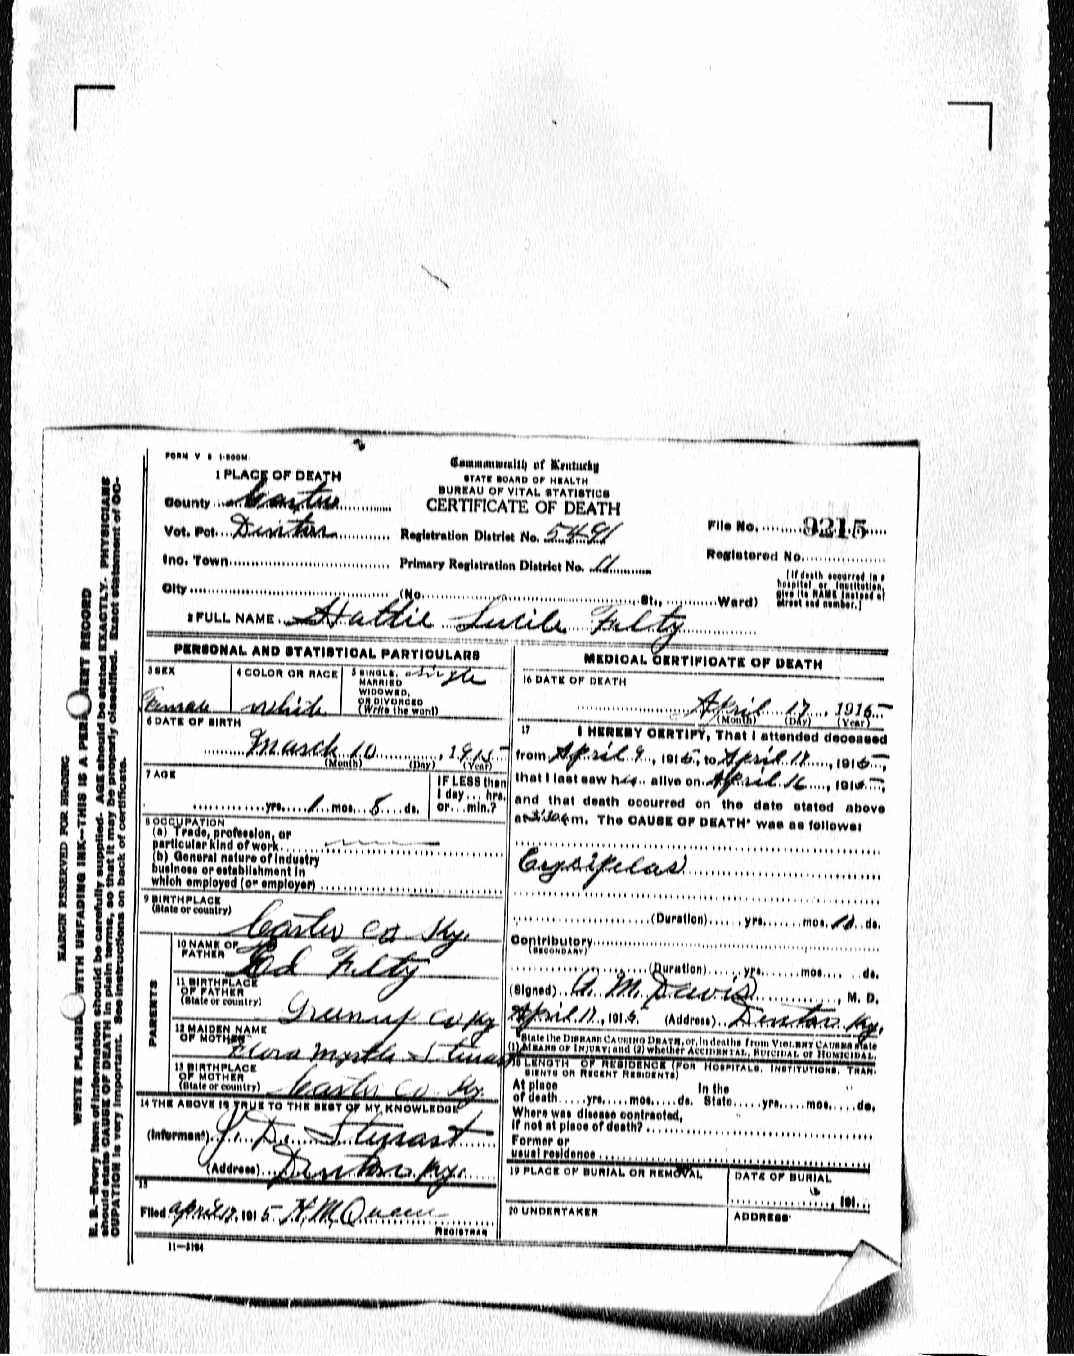 FORM V S 1-200M
Commonwealth of Kentucky
STATE BOARD OF HEALTH
BUREAU OF VITAL STATISTICS
CERTIFICATE OF DEATH
1 PLACE OF DEATH
County Carter
Vot. Pct. Denton
Registration District No. 5491
File No. 9215
Inc. Town
Primary Registration District No. 11
Registered No.
City (No. St., Ward)
[If death occurred in a
hospital or institution,
give its NAME instead of
street and number.]
2 FULL NAME Hattie Lucile Felty
PERSONAL AND STATISTICAL PARTICULARS
3 SEX
Female
4 COLOR OR RACE
White
5 SINGLE,
MARRIED
WIDOWED,
OR DIVORCED
(Write the word)
single
6 DATE OF BIRTH
March 10, 1915
(Month) (Day) (Year)
7 AGE
yrs. 1 mos. 8 ds.
IF LESS than
1 day... hrs.
or... min.?
8 OCCUPATION
(a) Trade, profession, or
particular kind of work
(b) General nature of industry
business or establishment in
which employed (or employer)
9 BIRTHPLACE
(State or country)
Carter Co Ky.
PARENTS
10 NAME OF
FATHER
Ed Felty
11 BIRTHPLACE
OF FATHER
(State or country)
Greenup Co Ky
12 MAIDEN NAME
OF MOTHER
Flora Myrtle Stewart
13 BIRTHPLACE
OF MOTHER
(State or country)
Carter Co Ky.
14 THE ABOVE IS TRUE TO THE BEST OF MY KNOWLEDGE
(Informant) J. D. Stewart
(Address) Denton Ky.
15
Filed April 17, 1915 H. M.
REGISTRAR
11-3184
MEDICAL CERTIFICATE OF DEATH
16 DATE OF DEATH
April 17, 1915
(Month) (Day) (Year)
17 I HEREBY CERTIFY, That I attended deceased
from April 9, 1915, to April 17, 1915,
that I last saw h alive on April 16, 1915,
and that death occurred on the date stated above
at m. The CAUSE OF DEATH* was as follows:
Erysipelas
(Duration) yrs. mos. ds.
Contributory
(SECONDARY)
(Duration) yrs. mos. ds.
(Signed) A. M. Davis, M. D.
April 17, 1915 (Address) Denton Ky.
*State the DISEASE CAUSING DEATH, or, in deaths from VIOLENT CAUSES state
(1) MEANS OF INJURY; and (2) whether ACCIDENTAL, SUICIDAL or HOMICIDAL.
18 LENGTH OF RESIDENCE (FOR HOSPITALS, INSTITUTIONS, TRAN-
SIENTS OR RECENT RESIDENTS)
At place In the
of death yrs. mos. ds. State yrs. mos. ds.
Where was disease contracted,
If not at place of death?
Former or
usual residence
19 PLACE OF BURIAL OR REMOVAL
DATE OF BURIAL
191
20 UNDERTAKER
ADDRESS
MARGIN RESERVED FOR BINDING
WRITE PLAINLY WITH UNFADING INK—THIS IS A PERMANENT RECORD
N. B.—Every item of information should be carefully supplied. AGE should be stated EXACTLY. PHYSICIANS
should state CAUSE OF DEATH in plain terms, so that it may be properly classified. Exact statement of OC-
CUPATION is very important. See instructions on back of certificate.